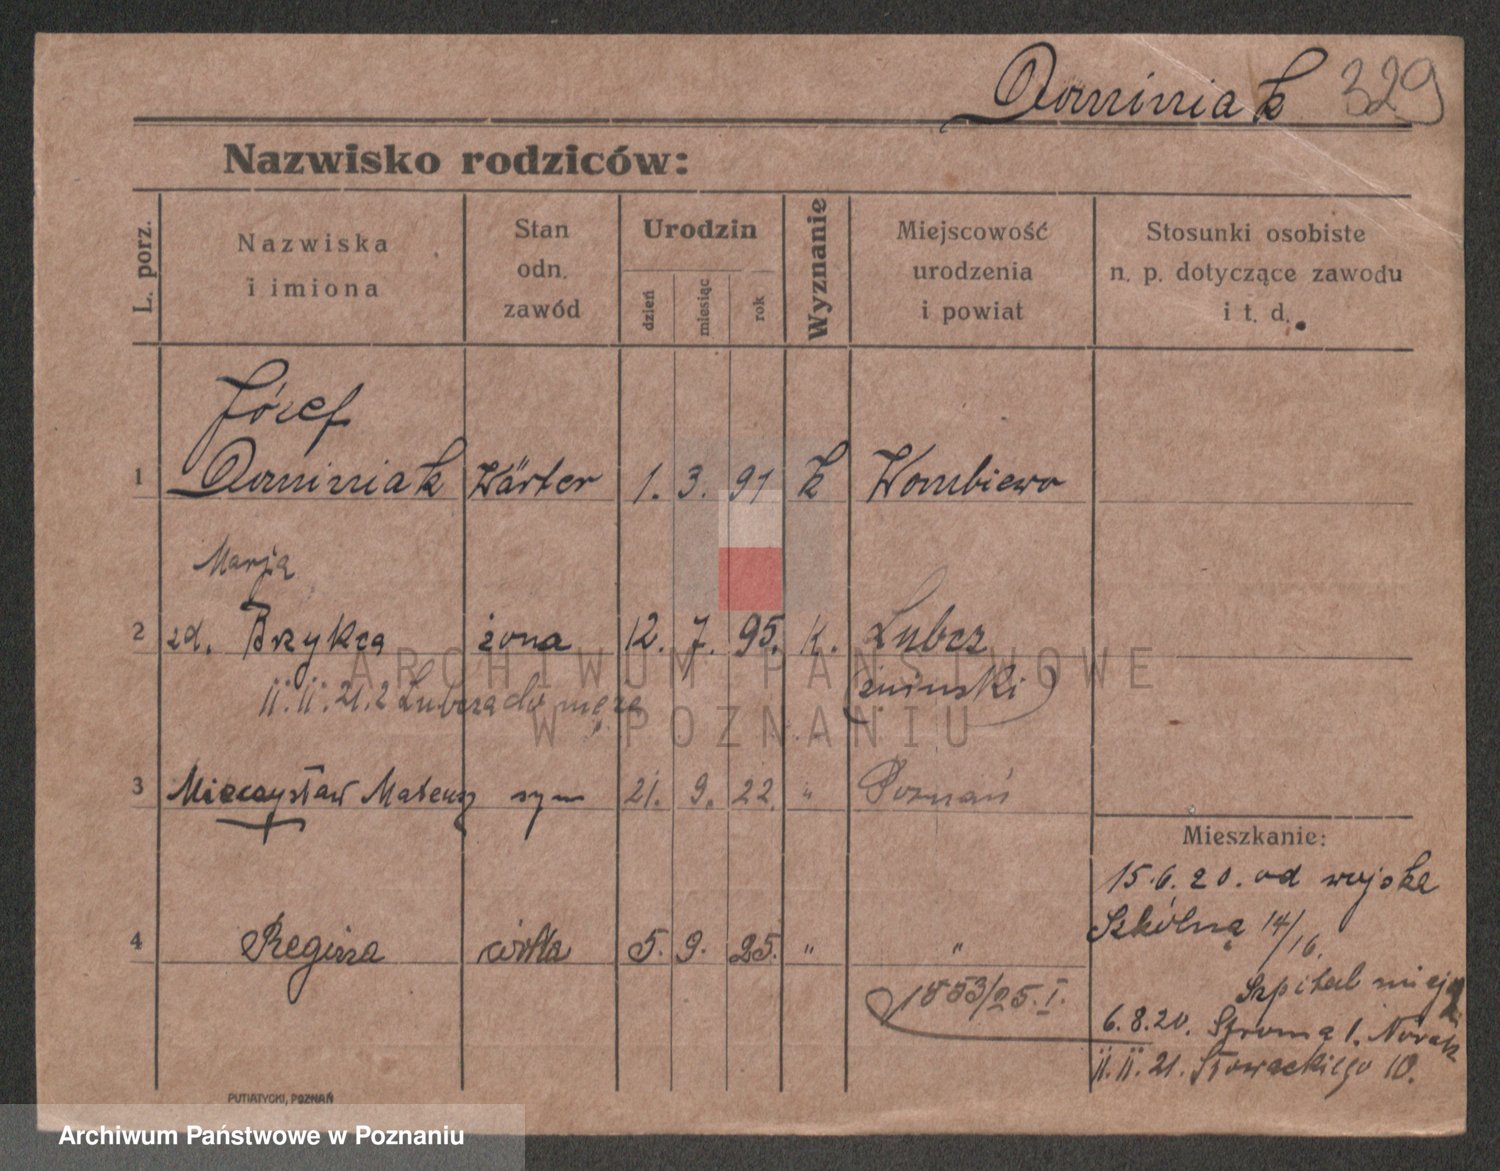 Dominiak 329
Nazwisko rodziców:
L. porz.
Nazwiska
i imiona
Stan
odn.
zawód
Urodzin
dzień
miesiąc
rok
Wyznanie
Miejscowość
urodzenia
i powiat
Stosunki osobiste
n. p. dotyczące zawodu
i t. d.
Józef
1 Dominiak Wärter 1. 3. 91 k Wombiewo
Marja
2 zd. Brzykca żona 12. 7. 95. k. Lubcz
żninski
11. 11. 21. z Lubcza do męża
3 Mieczysław Mateusz syn 21. 9. 22. " Poznań
4 Regina córka 5. 9. 25. " "
1853/25. I.
Mieszkanie:
15. 6. 20. od wojska
Szkólną 14/16.
Szpital miejs
6. 8. 20. Stromą 1. Nowak
11. 11. 21. Słowackiego 10.
PUTIATYCKI, POZNAŃ
ARCHIWUM PAŃSTWOWE
W POZNANIU
Archiwum Państwowe w Poznaniu